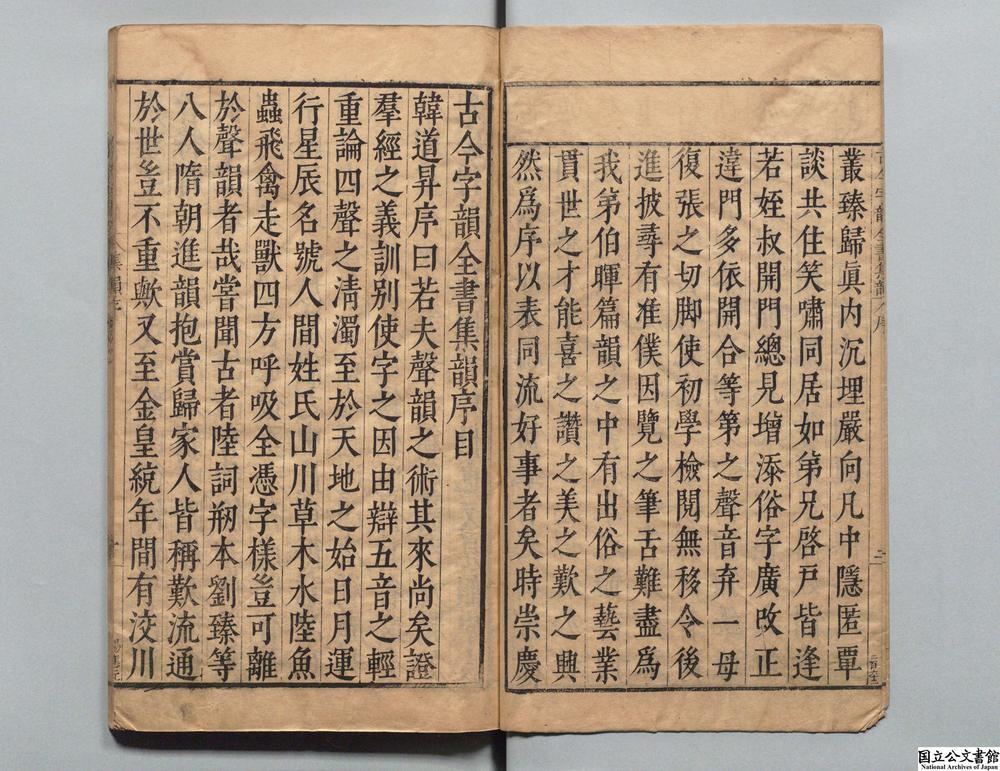 叢臻歸眞内沉埋嚴向凡中隱匿覃
談共住笑嘯同居如第兄啓戸皆逢
若姪叔開門總見増添俗字廣改正
違門多依開合等第之聲音弃一母
復張之切脚使初學檢閲無移令後
進披尋有准僕因覽之筆舌難盡爲
我第伯暉篇韻之中有出俗之藝業
貫世之才能喜之讚之美之歎之興
然爲序以表同流好事者矣時崇慶
古今字韻全書集韻序目
韓道昇序曰若夫聲韻之術其來尚矣證
羣經之義訓别使字之因由辯五音之輕
重論四聲之淸濁至於天地之始日月運
行星辰名號人間姓氏山川草木水陸魚
蟲飛禽走獸四方呼吸全憑字樣豈可離
於聲韻者哉嘗聞古者陸詞剏本劉臻等
八人隋朝進韻抱賞歸家人皆稱歎流通
於世豈不重歟又至金皇統年間有洨川
国立公文書館
National Archives of Japan